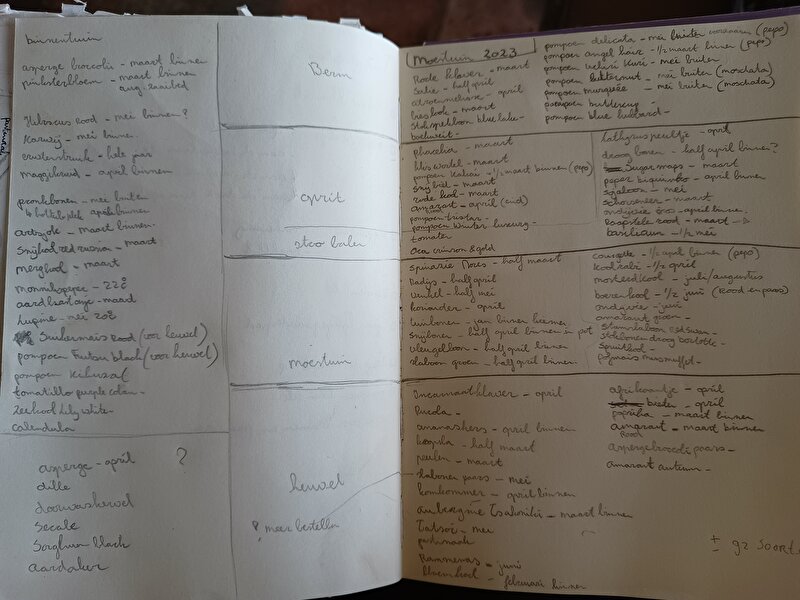 binnentuin
asperge broccoli - maart binnen
pinksterbloem - maart binnen
aug. zaaibed
Hibiscus rood - mei binnen?
Karwij - mei binnen
erwtenstruik - hele jaar
maggikruid - april binnen
pronkbonen - mei buiten
april binnen
artisjok - maart binnen
Snijkool red russian - maart
mergkool - maart
monnikspeper - 22°
aardkastanje - maart
lupine - mei 20°
Suikermais rood (voor heuvel)
pompoen Futsu black (voor heuvel)
pompoen
tomatillo purple
zeekool lily white -
calendula
asperge - april ?
dille
doorwaskervel
Secale
Sorghum black
aardaker
Berm
april
stro balen
moestuin
heuvel
? meer bestellen
Moestuin 2023
Rode klaver - maart
Salie - half april
citroenmelisse - april
kool - maart
Stokspekboon blue lake -
boekweit -
pompoen delicata - mei buiten (pepo)
pompoen angel hair - 1/2 maart binnen (pepo)
pompoen uchiki kuri - mei buiten
pompoen butternut - mei buiten (moschata)
pompoen musquée - mei buiten (moschata)
pompoen buttercup -
pompoen blue hubbard -
phacelia - maart
kliswortel - maart
pompoen - 1/2 maart binnen (pepo)
Snijbiet - maart
rode kool - maart
amarant - april (eind)
rood
pompoen tristar -
pompoen winter luxury -
tomaten
Oca crimson & gold
lathyrus peultje - april
droog bonen - half april binnen?
Sugarsnaps - maart
peper - april binnen
sjalotten - mei
schorseneer - maart
andijvie - april binnen
Raapstelen rood - maart
basilicum - 1/2 mei
Spinazie - half maart
Radijs - half april
venkel - half mei
koriander - april
tuinbonen - jan binnen kiemen
snijbonen - half april binnen in pot
vleugelboon - half april binnen
slaboon groen - half april binnen
courgette - 1/2 april binnen (pepo)
Koolrabi - 1/2 april
mosterdkool - juli/augustus
boerenkool - 1/2 juni (Rood en paars)
andijvie - juni
amarant groen -
stamslaboon
stokbonen droog borlotto -
Spruitkool -
pofmais
Incarnaatklaver - april
Rucola -
ananaskers - april binnen
koapla - half maart
peulen - maart
slabonen paars - mei
komkommer - april binnen
aubergine Tsakoniki - maart binnen
Tatsoi - mei
pastinaak
Rammenas - juni
bloemkool - februari binnen
afrikaantje - april
bieten - april
paprika - maart binnen
amarant - maart binnen
Rood
aspergebroccoli paars -
amarant autumn -
± 92 soorten